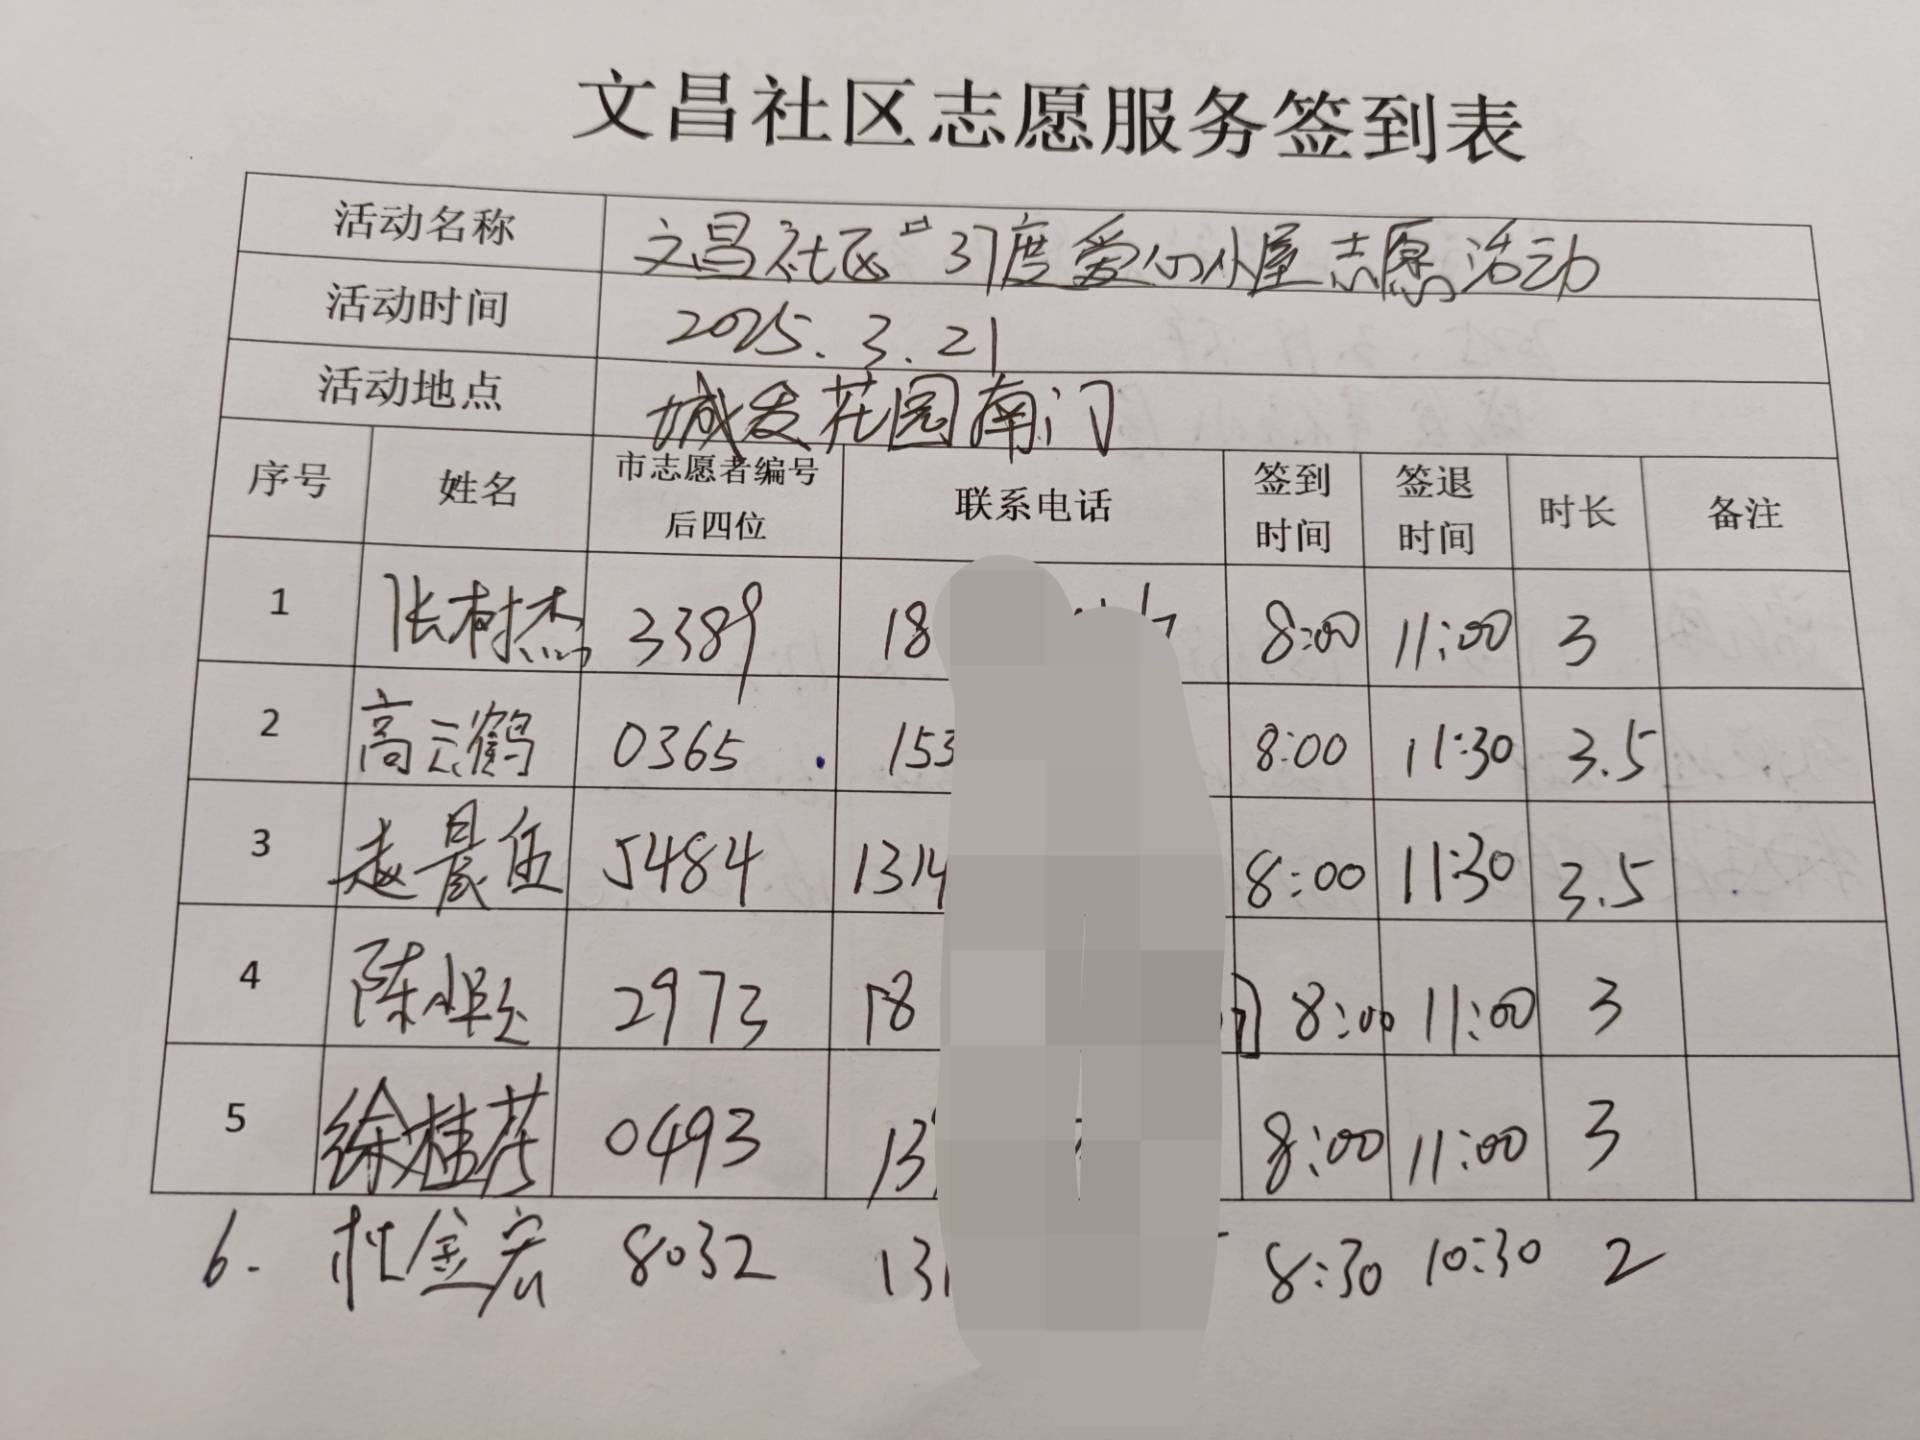 文昌社区志愿服务签到表
活动名称 文昌社区“37度爱心小屋志愿活动
活动时间 2025.3.21
活动地点 城发花园南门
序号 姓名 市志愿者编号后四位 联系电话 签到时间 签退时间 时长 备注
1 张树杰 3389 18 8:00 11:00 3
2 高云鹤 0365 153 8:00 11:30 3.5
3 赵晨伍 5484 1314 8:00 11:30 3.5
4 陈 2973 18 8:00 11:00 3
5 徐桂芹 0493 13 8:00 11:00 3
6. 杜金宏 8032 131 8:30 10:30 2